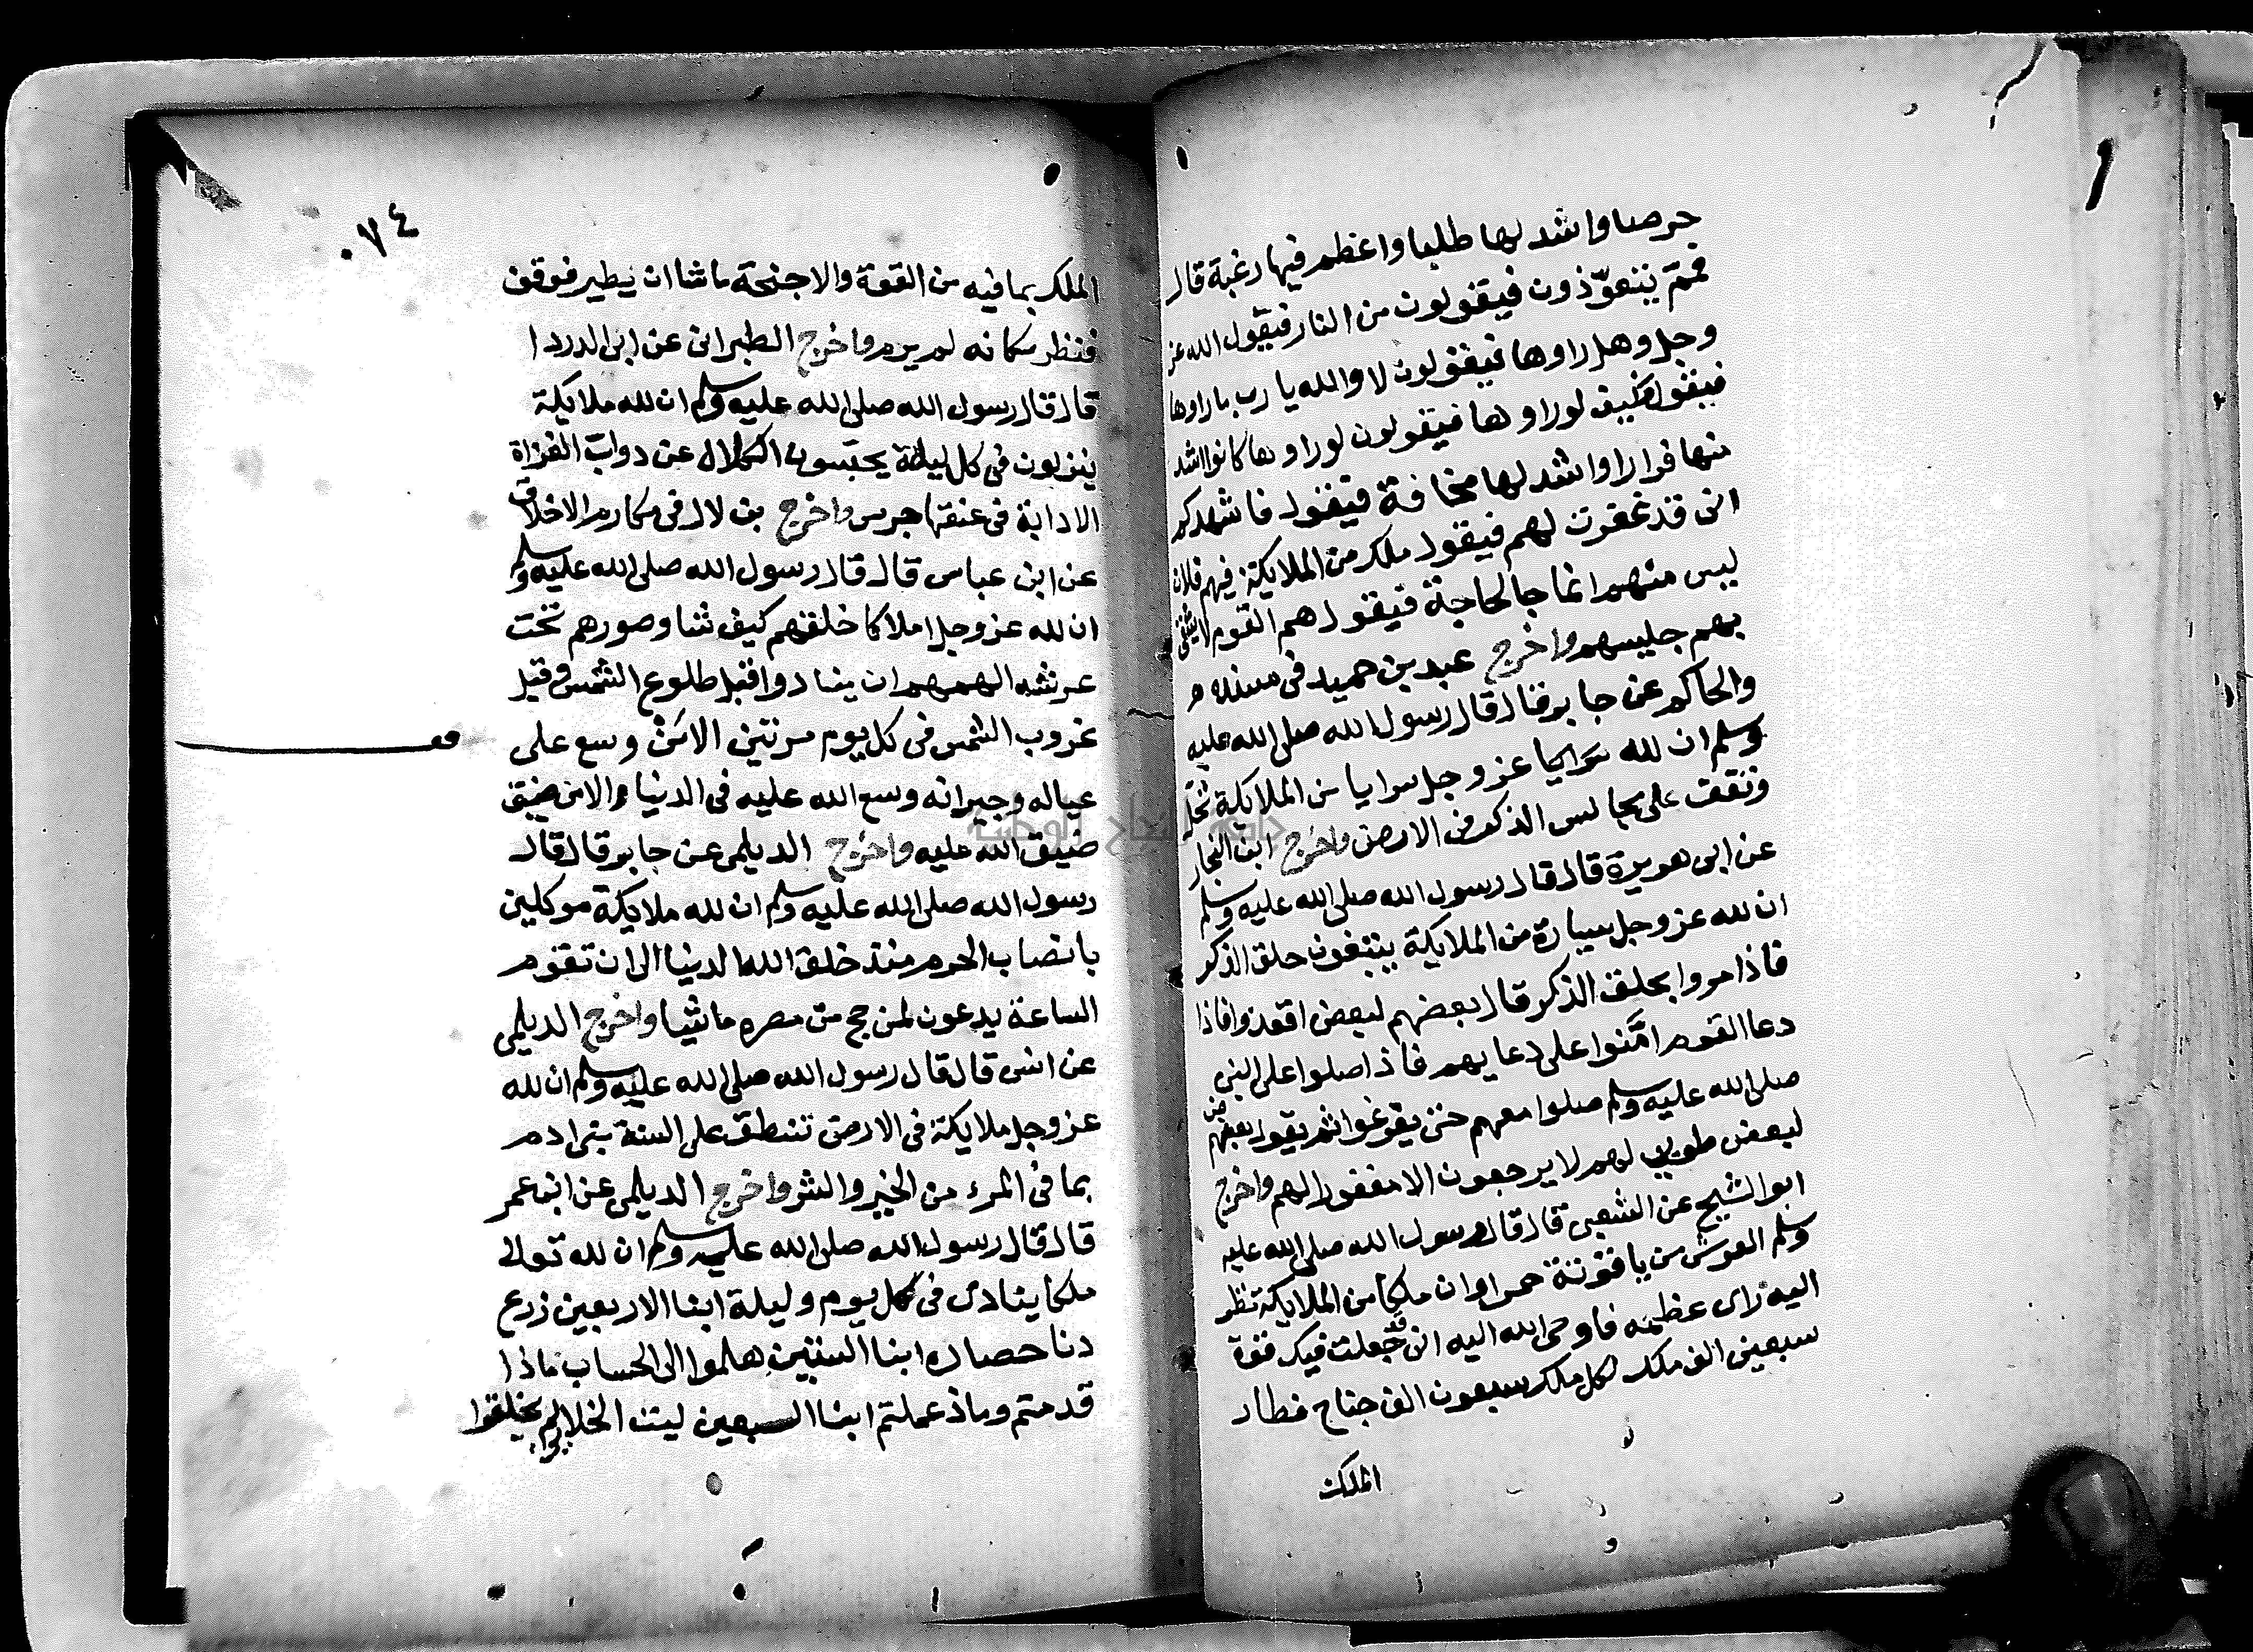 حرصا واشد لها طلبا واعظم فيها رغبة قال
فمم يتعوّذون فيقولون من النار فيقول الله عز
وجل وهل راوها فيقولون لا والله يا رب ما راوها
فيقول فكيف لوراوها فيقولون لوراوها كانوا اشد
منها فرارا واشد لها مخافة فيقول فاشهدكم
انى قد غفرت لهم فيقول ملك من الملايكة فيهم فلان
ليس منهم انما جا لحاجة فيقول هم القوم لا يشقى
بهم جليسهم واخرج عبد بن حميد فى مسنده
والحاكم عن جابر قال قال رسول الله صلى الله عليه
وسلم ان لله عز وجل سرايا من الملايكة تحل
وتقف على مجالس الذكر فى الارض واخرج ابن النجار
عن ابى هريرة قال قال رسول الله صلى الله عليه وسلم
ان لله عز وجل سيارة من الملايكة يبتغون حلق الذكر
فاذا مروا بحلق الذكر قال بعضهم لبعض اقعدوا فاذا
دعا القوم امّنوا على دعايهم فاذا صلوا على النبى
صلى الله عليه وسلم صلوا معهم حتى يفرغوا ثم يقول بعضهم
لبعض طوبى لهم لا يرجعون الا مغفورا لهم واخرج
ابو الشيخ عن الشعبى قال قال رسول الله صلى الله عليه
وسلم العرش من ياقوتة حمرا وان ملكا من الملايكة نظر
اليه راى عظمه فاوحى الله اليه انى قد جعلت فيك قوة
سبعين الف ملك لكل ملك سبعون الف جناح فطار
الملك
٠٧٤
الملك بما فيه من القوة والاجنحة ما شا ان يطير فوقف
فنظر فكانه لم يرم واخرج الطبرانى عن ابى الدردا
قال قال رسول الله صلى الله عليه وسلم ان لله ملايكة
ينزلون فى كل ليلة يحبسون الكلال عن دواب الغزاة
الا دابة فى عنقها جرس واخرج بن لال فى مكارم الاخلاق
عن ابن عباس قال قال رسول الله صلى الله عليه وسلم
ان لله عز وجل املاكا خلقهم كيف شا وصورهم تحت
عرشه الهمهم ان ينادوا قبل طلوع الشمس وقبل
غروب الشمس فى كل يوم مرتين الا مَنْ وسع على
عياله وجيرانه وسع الله عليه فى الدنيا الا من ضيق
ضيق الله عليه واخرج الديلمى عن جابر قال قال
رسول الله صلى الله عليه وسلم ان لله ملايكة موكلين
بانصاب الحرم منذ خلق الله الدنيا الى ان تقوم
الساعة يدعون لمن حج من مصره ماشيا واخرج الديلمى
عن انس قال قال رسول الله صلى الله عليه وسلم ان لله
عز وجل ملايكة فى الارض تنطق على السنة بنى ادم
بما فى المرء من الخير والشر واخرج الديلمى عن ابن عمر
قال قال رسول الله صلى الله عليه وسلم ان لله تعالى
ملكا ينادى فى كل يوم وليلة ابنا الاربعين زرع
دنا حصاده ابنا الستين هلموا الى الحساب ماذا
قدمتم وماذ عملتم ابنا السبعين ليت الخلايق لم يخلقوا
جامعة النجاح الوطنية